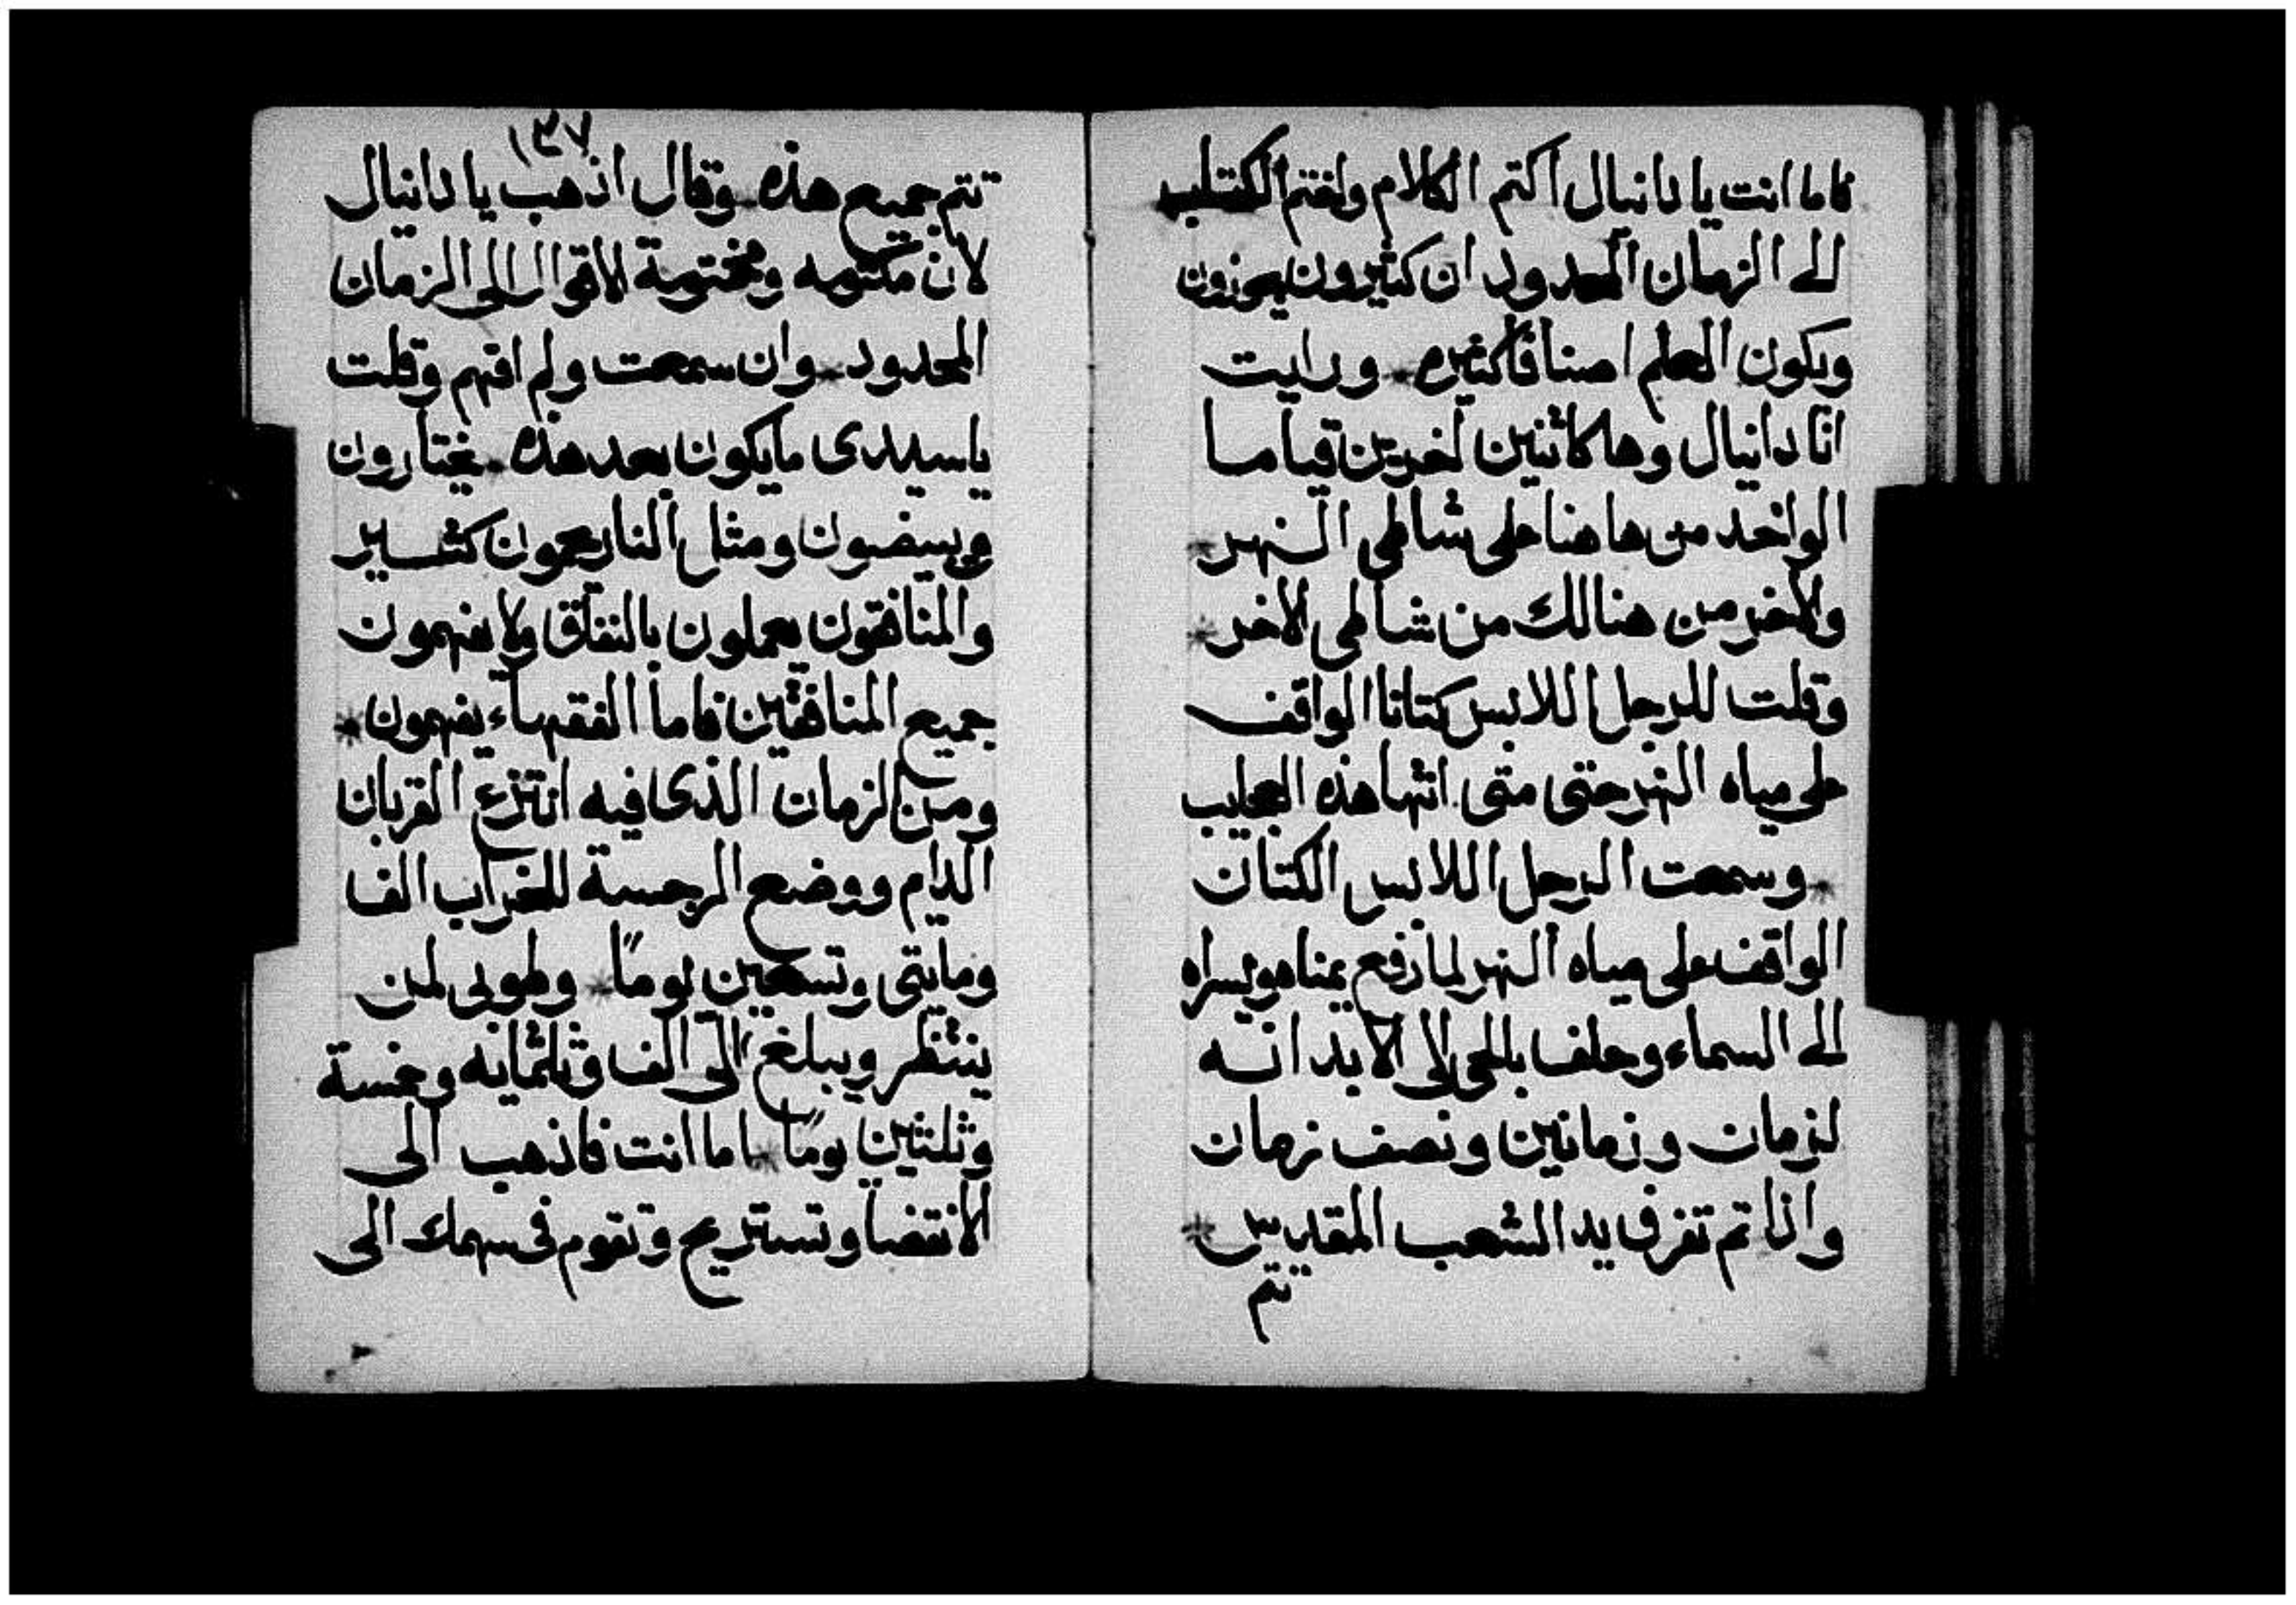 فاما انت يا دانيال اكتم الكلام واختم الكتاب
الى الزمان المحدود ان كثيرون يجوزون
ويكون العلم اصنافا كثيره * ورايت
انا دانيال وها كاثنين اخرين قياما
الواحد من ها هنا على شاطى النهر *
والاخر من هنالك من شاطى الاخر *
وقلت للرجل اللابس كتانا الواقف
على مياه النهر حتى متى انتها هذه العجايب
* وسمعت الرجل اللابس الكتان
الواقف على مياه النهر لما رفع يمناه ويسراه
الى السماء وحلف بالحى الى الابد انه
لزمان وزمانين ونصف زمان
واذا تم تفرق يد الشعب المقدس *
تتم
١٣٧
تتم جميع هذه * وقال اذهب يا دانيال
لان مكتومه ومختومة الاقوال الى الزمان
المحدود * وان سمعت ولم افهم وقلت
يا سيدى ما يكون بعد هذه * يختارون
ويبيضون ومثل النار يحمون كثير
والمنافقون يعملون بالنفاق ولا يفهمون
جميع المنافقين فاما الفقهاء يفهمون *
ومن الزمان الذى فيه انتزع القربان
الدايم ووضع الرجسة للخراب الف
ومايتى وتسعين يوما * وطوبى لمن
ينتظر ويبلغ الى الف وثلثمايه وخمسة
وثلثين يوما * اما انت فاذهب الى
الانقضا وتستريح وتقوم فى سهمك الى